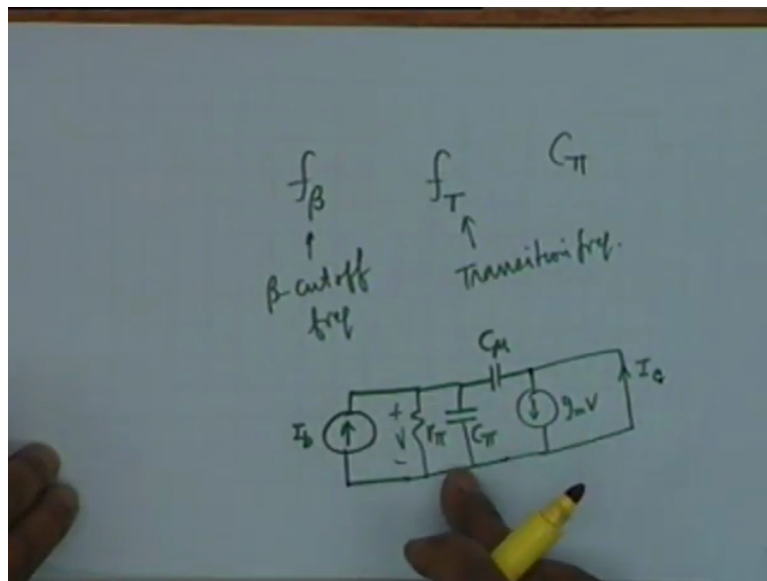 fβ fT Cπ
β-cutoff freq
Transition freq.
Cμ
Ib + V − rπ Cπ gmV Ic